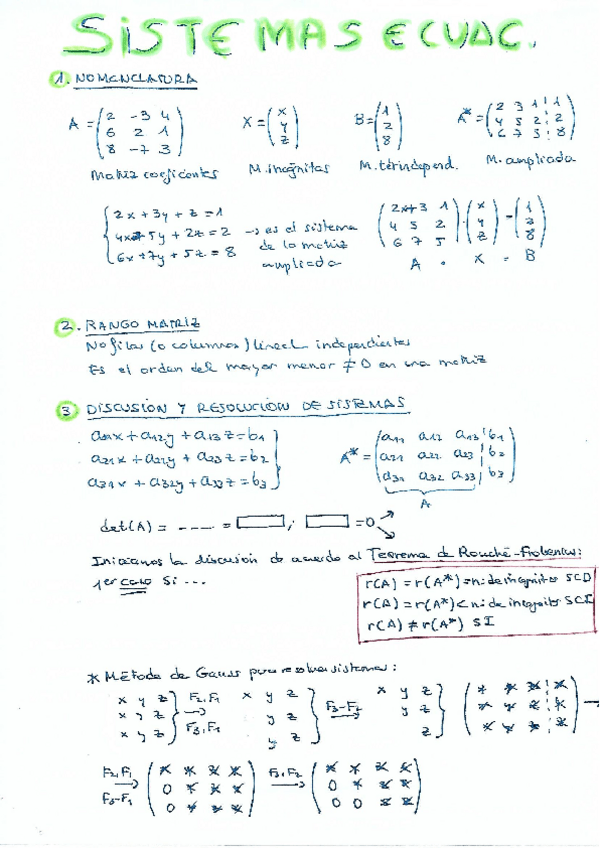 SISTEMAS ECUAC.
1. NOMENCLATURA
A = (2 -3 4 / 6 2 1 / 8 -7 3) X = (x / y / z) B = (1 / 2 / 8) A* = (2 3 1 | 1 / 4 5 2 | 2 / 6 7 5 | 8)
Matriz coeficientes M. incógnitas M. térindepend. M. ampliada
2x + 3y + z = 1
4x + 5y + 2z = 2 → es el sistema
6x + 7y + 5z = 8 de la matriz ampliada
(2 3 1 / 4 5 2 / 6 7 5) · (x / y / z) = (1 / 2 / 8)
A · X = B
2. RANGO MATRIZ
No filas (o columnas) lineal independientes
Es el orden del mayor menor ≠ 0 en una matriz
3 DISCUSIÓN Y RESOLUCIÓN DE SISTEMAS
a11x + a12y + a13z = b1
a21x + a22y + a23z = b2
a31x + a32y + a33z = b3
A* = (a11 a12 a13 | b1 / a21 a22 a23 | b2 / a31 a32 a33 | b3)
A
det(A) = ---- = ; = 0
Iniciamos la discusión de acuerdo al Teorema de Rouché-Frobenius:
1er caso Si ...
r(A) = r(A*) = n: de incógnitas SCD
r(A) = r(A*) < n: de incógnitas SCI
r(A) ≠ r(A*) SI
* Método de Gauss para resolver sistemas:
x y z F2,F1 x y z x y z
x y z → y z F3-F2 y z
x y z F3,F1 y z → z
(* * * | * / * * * | * / * * * | *) →
F2,F1 → F3-F1 (* * * * / 0 * * * / 0 * * *) F3,F2 → (* * * * / 0 * * * / 0 0 * *)